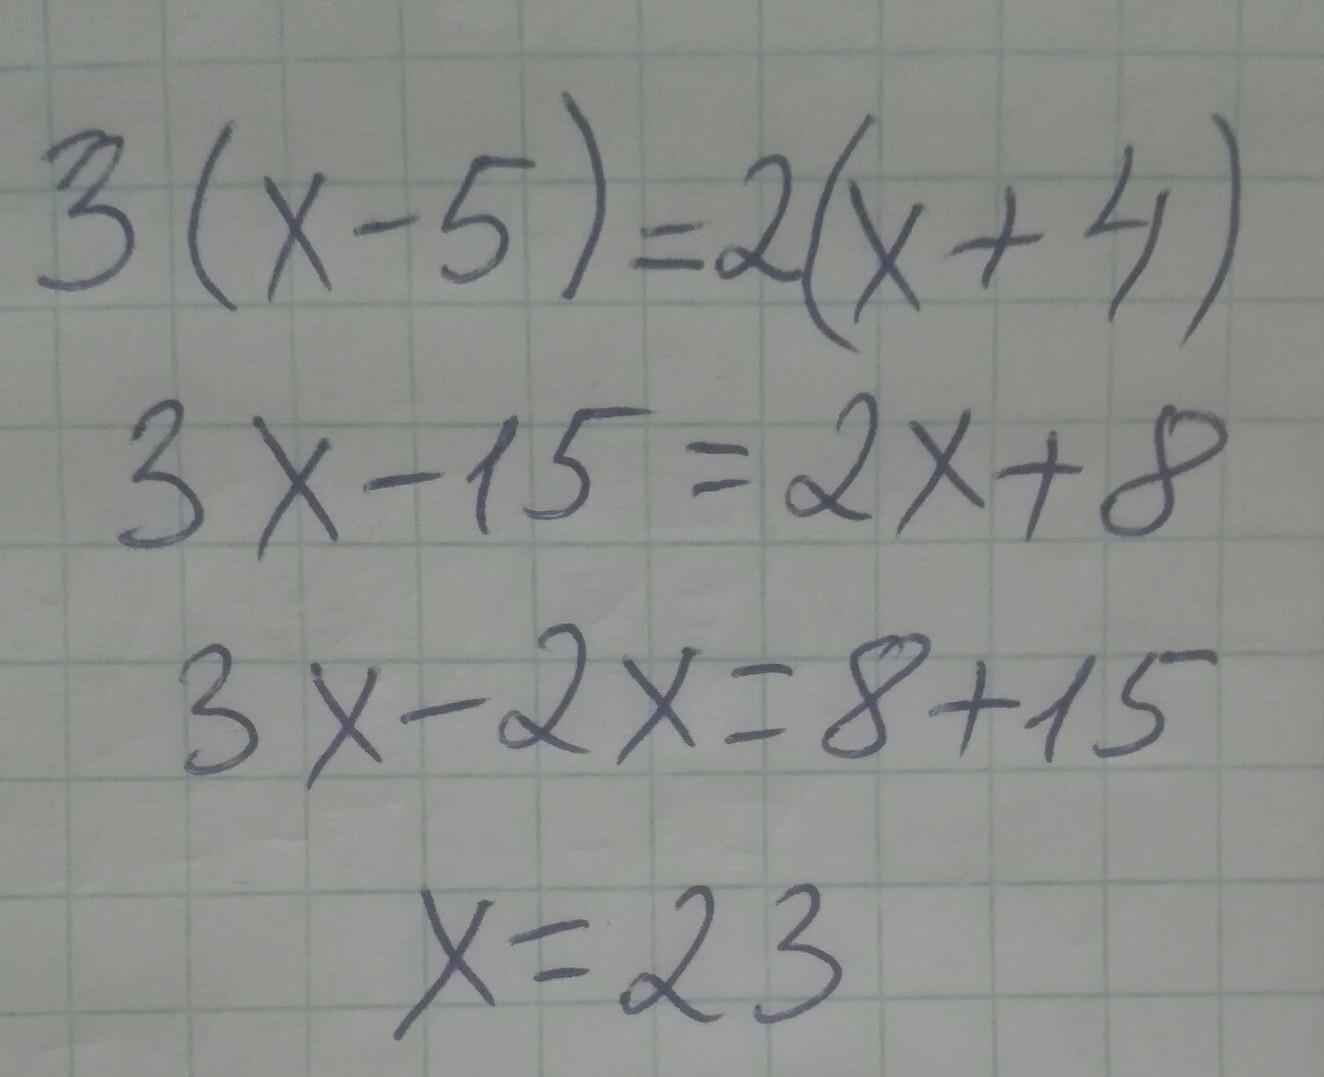 3(x-5)=2(x+4)
3x-15=2x+8
3x-2x=8+15
x=23